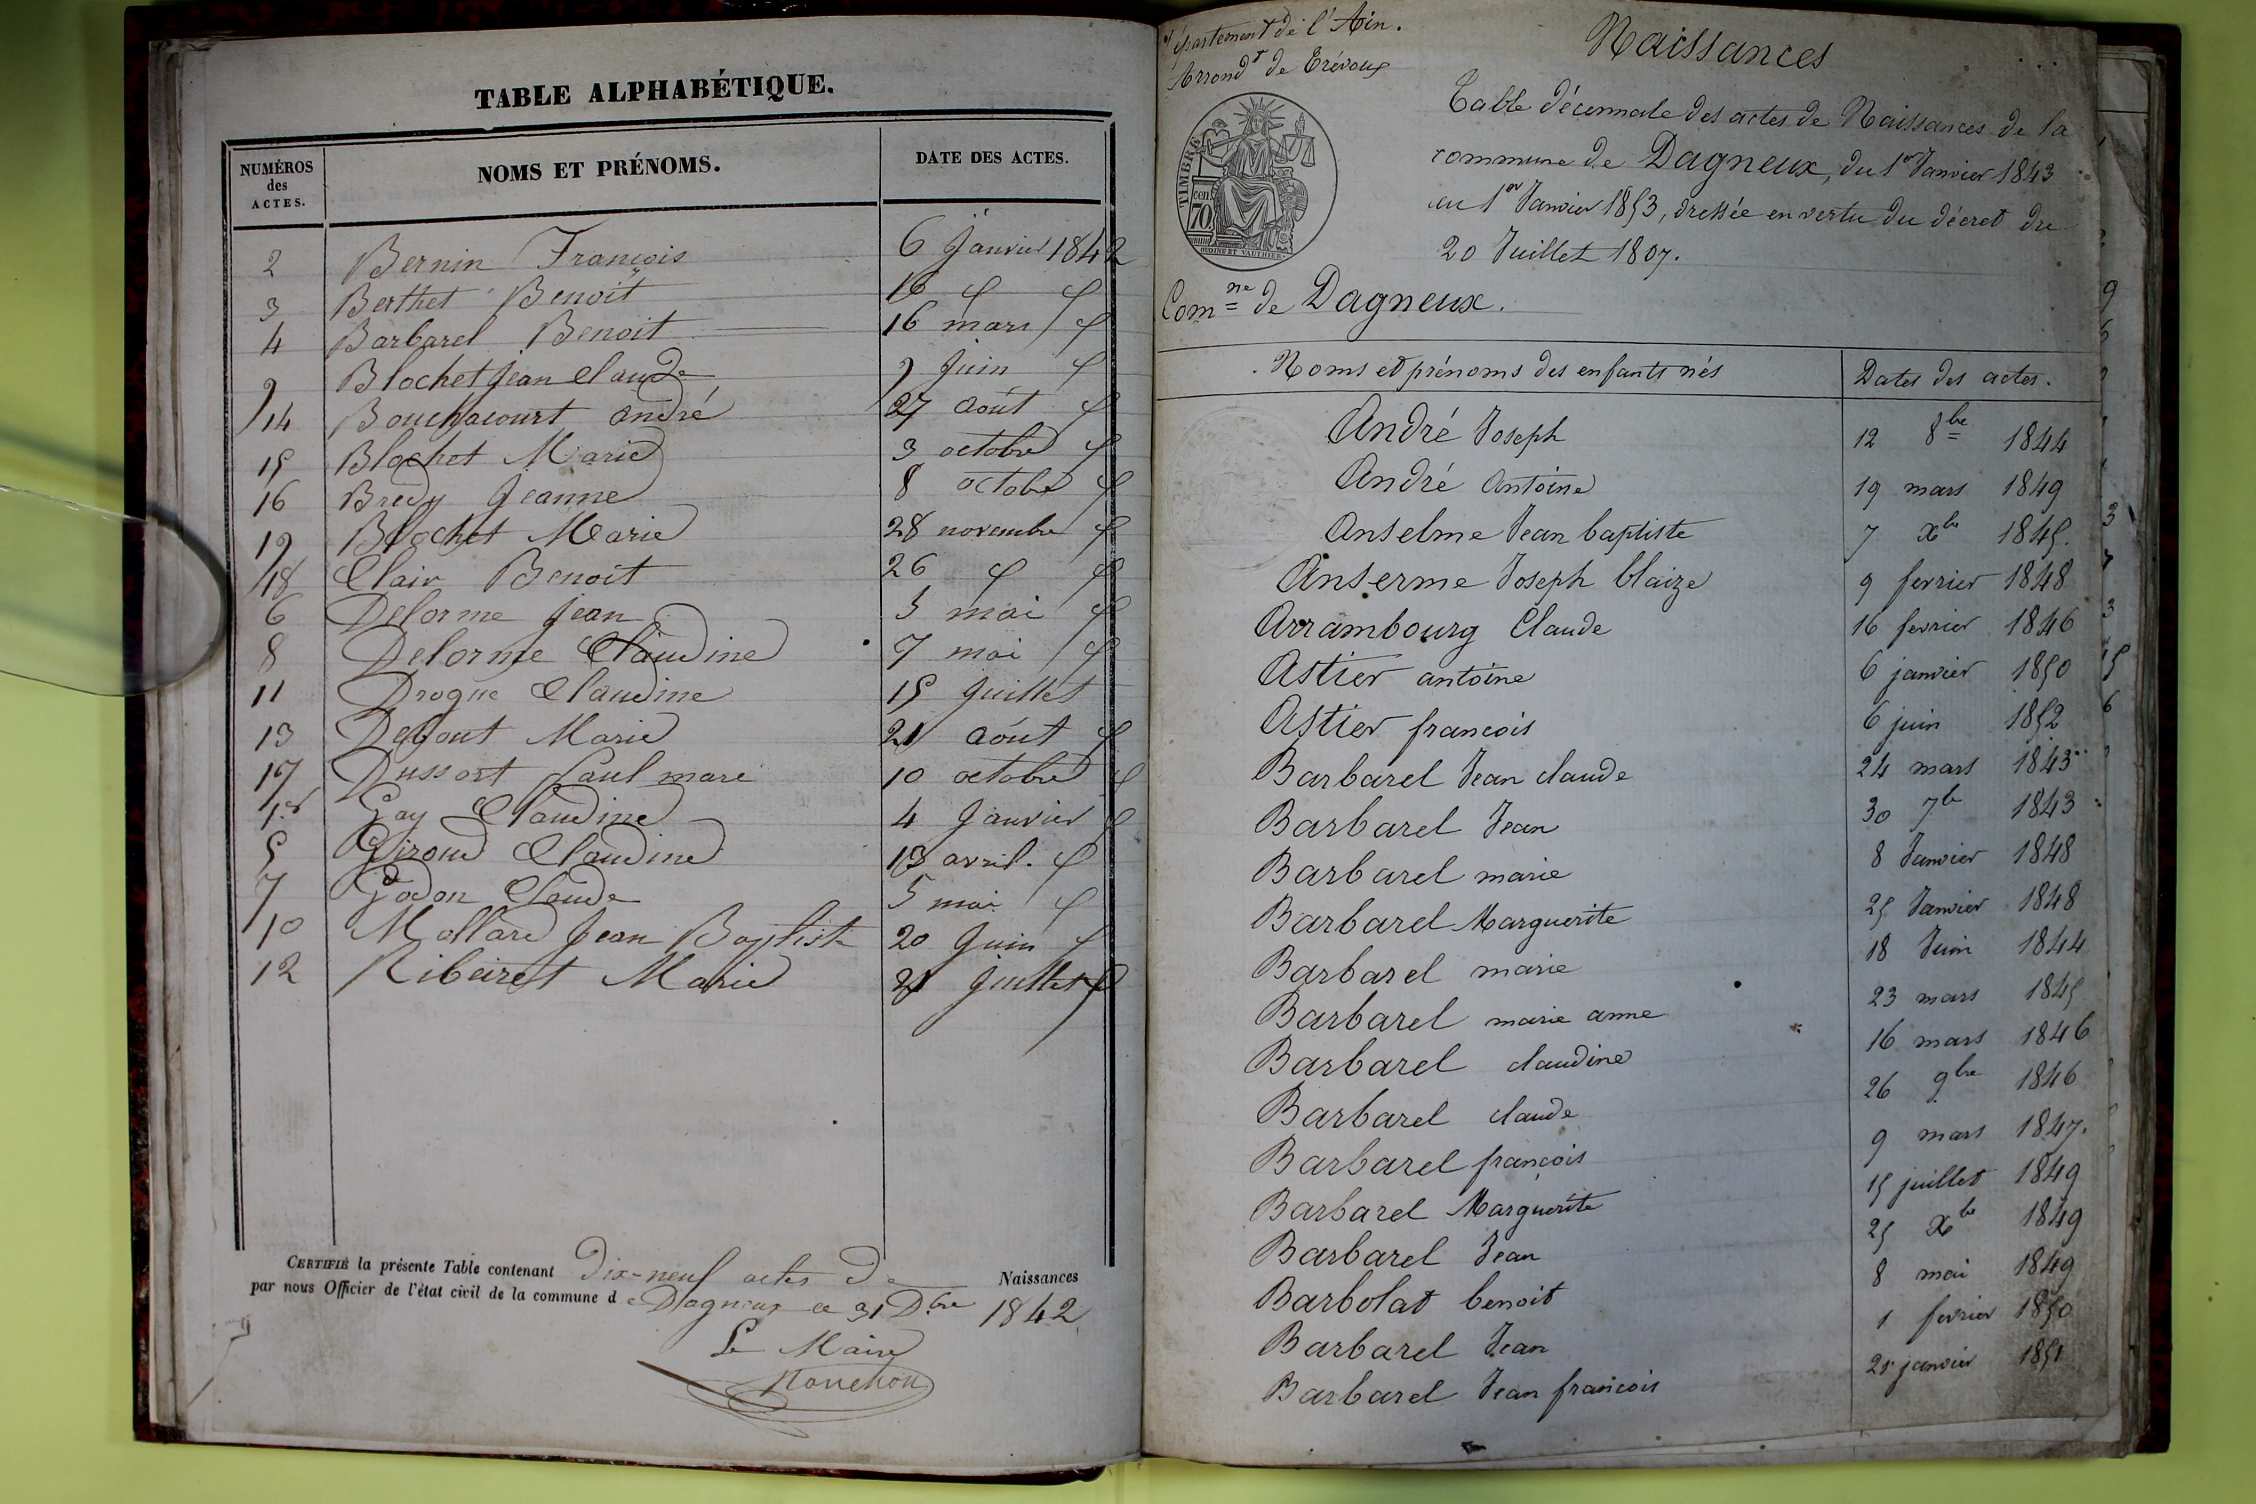 TABLE ALPHABÉTIQUE.
NUMÉROS des ACTES. NOMS ET PRÉNOMS. DATE DES ACTES.
2 Bernin François 6 Janvier 1842
3 Berthet Benoit 16 " "
4 Barbarel Benoit 16 mars "
9 Blochet Jean Claude 9 Juin "
14 Bouchacourt André 27 Août "
15 Blochet Marie 3 octobre "
16 Bredy Jeanne 8 octobre "
19 Blochet Marie 28 novembre "
18 Clair Benoit 26 " "
6 Delorme Jean 5 mai "
8 Delorme Claudine 7 mai "
11 Drogue Claudine 15 Juillet
13 Marie 21 Août "
17 Dussort Paul marc 10 octobre "
1er Gay Claudine 4 Janvier "
5 Giroud Claudine 13 avril. "
7 Godon Claude 5 mai "
10 Mollard Jean Baptiste 20 Juin "
12 Marie 21 Juillet "
CERTIFIÉ la présente Table contenant Dix-neuf actes de Naissances
par nous Officier de l'état civil de la commune de Dagneux ce 31 Dbre 1842
Le Maire
Département de l'Ain.
Arrondt de Trévoux
Naissances
TIMBRE
cen 70
OUDINE ET VAUTHIER
Table décennale des actes de Naissances de la
commune de Dagneux, du 1er Janvier 1843
au 1er Janvier 1853, dressée en vertu du décret du
20 Juillet 1807.
Comne de Dagneux.
Noms et prénoms des enfants nés Dates des actes.
André Joseph 12 8bre 1844
André Antoine 19 mars 1849
Anselme Jean baptiste 7 Xbre 1845.
Anserme Joseph blaize 9 fevrier 1848
Arrambourg Claude 16 fevrier 1846
Astier antoine 6 janvier 1850
Astier françois 6 juin 1852
Barbarel Jean claude 24 mars 1843
Barbarel Jean 30 7bre 1843
Barbarel marie 8 Janvier 1848
Barbarel Marguerite 25 Janvier 1848
Barbarel marie 18 Juin 1844
Barbarel marie anne 23 mars 1845
Barbarel claudine 16 mars 1846
Barbarel claude 26 9bre 1846
Barbarel françois 9 mars 1847.
Barbarel Marguerite 15 juillet 1849
Barbarel Jean 25 Xbre 1849
Barbolat benoit 8 mai 1849
Barbarel Jean 1 fevrier 1850
Barbarel Jean françois 21 janvier 1851